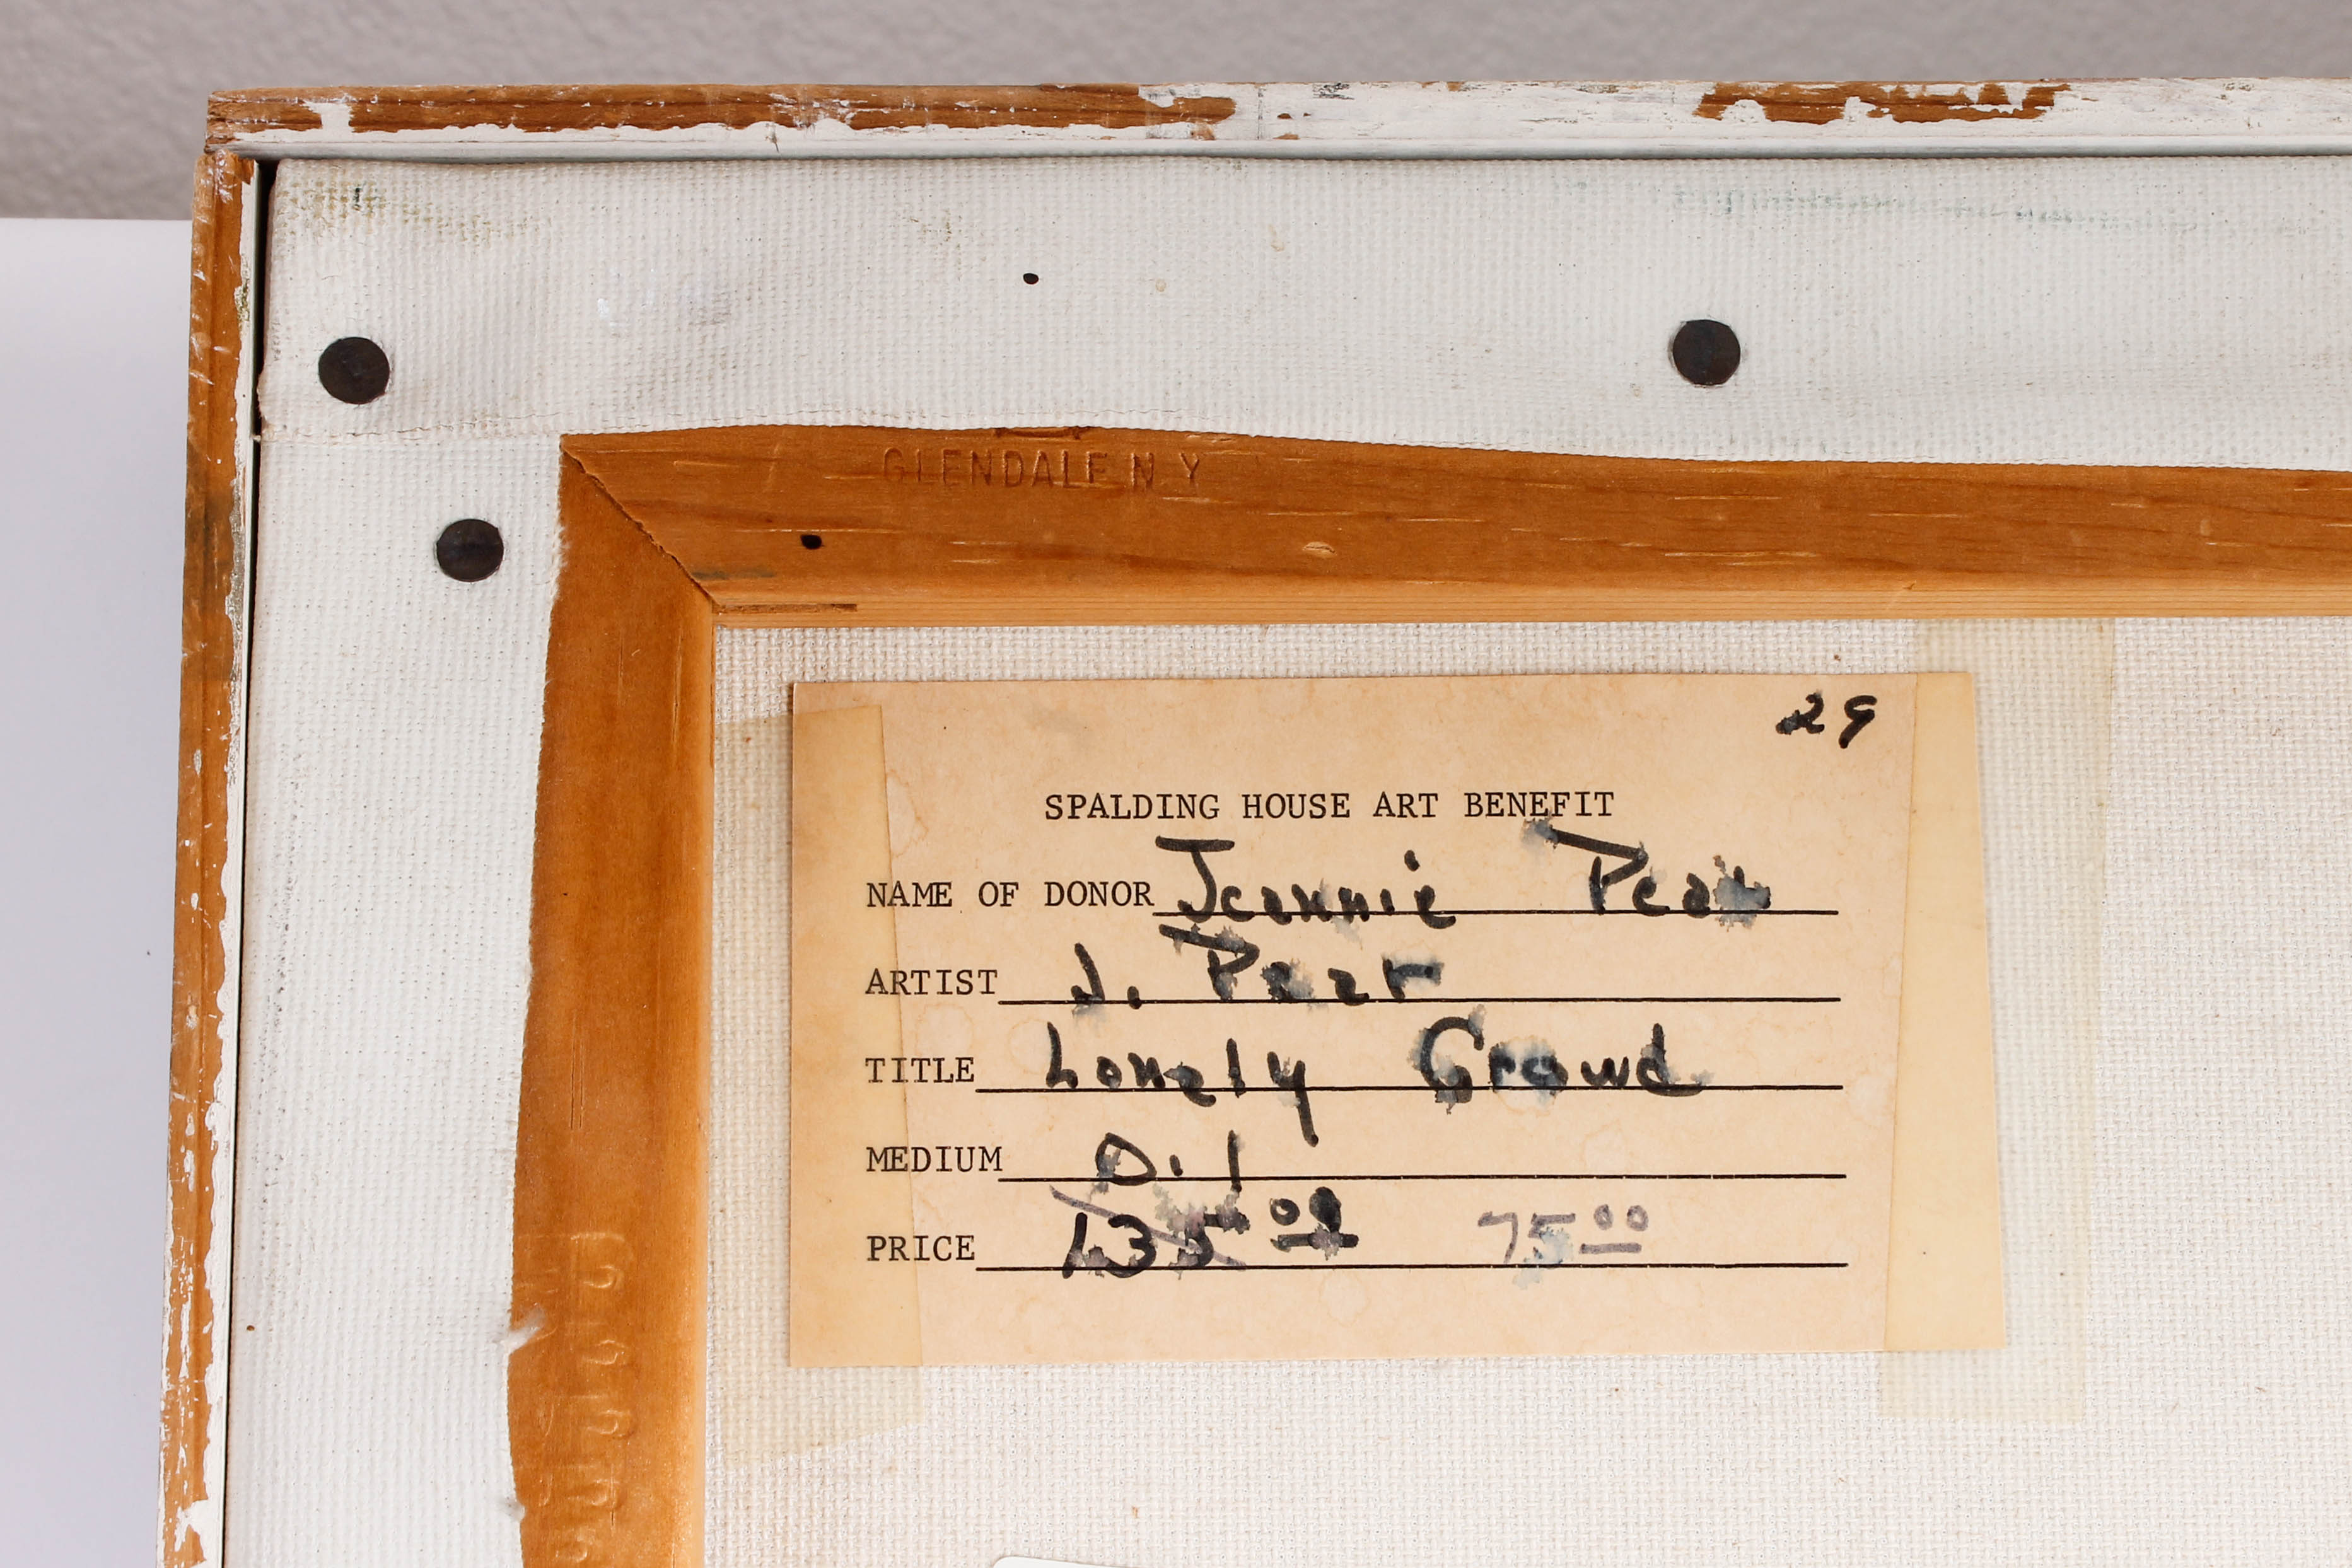 GLENDALE N Y
29
SPALDING HOUSE ART BENEFIT
NAME OF DONOR Jeannie Pear
ARTIST J. Pear
TITLE Lonely Crowd
MEDIUM Oil
PRICE 135 00 75 00